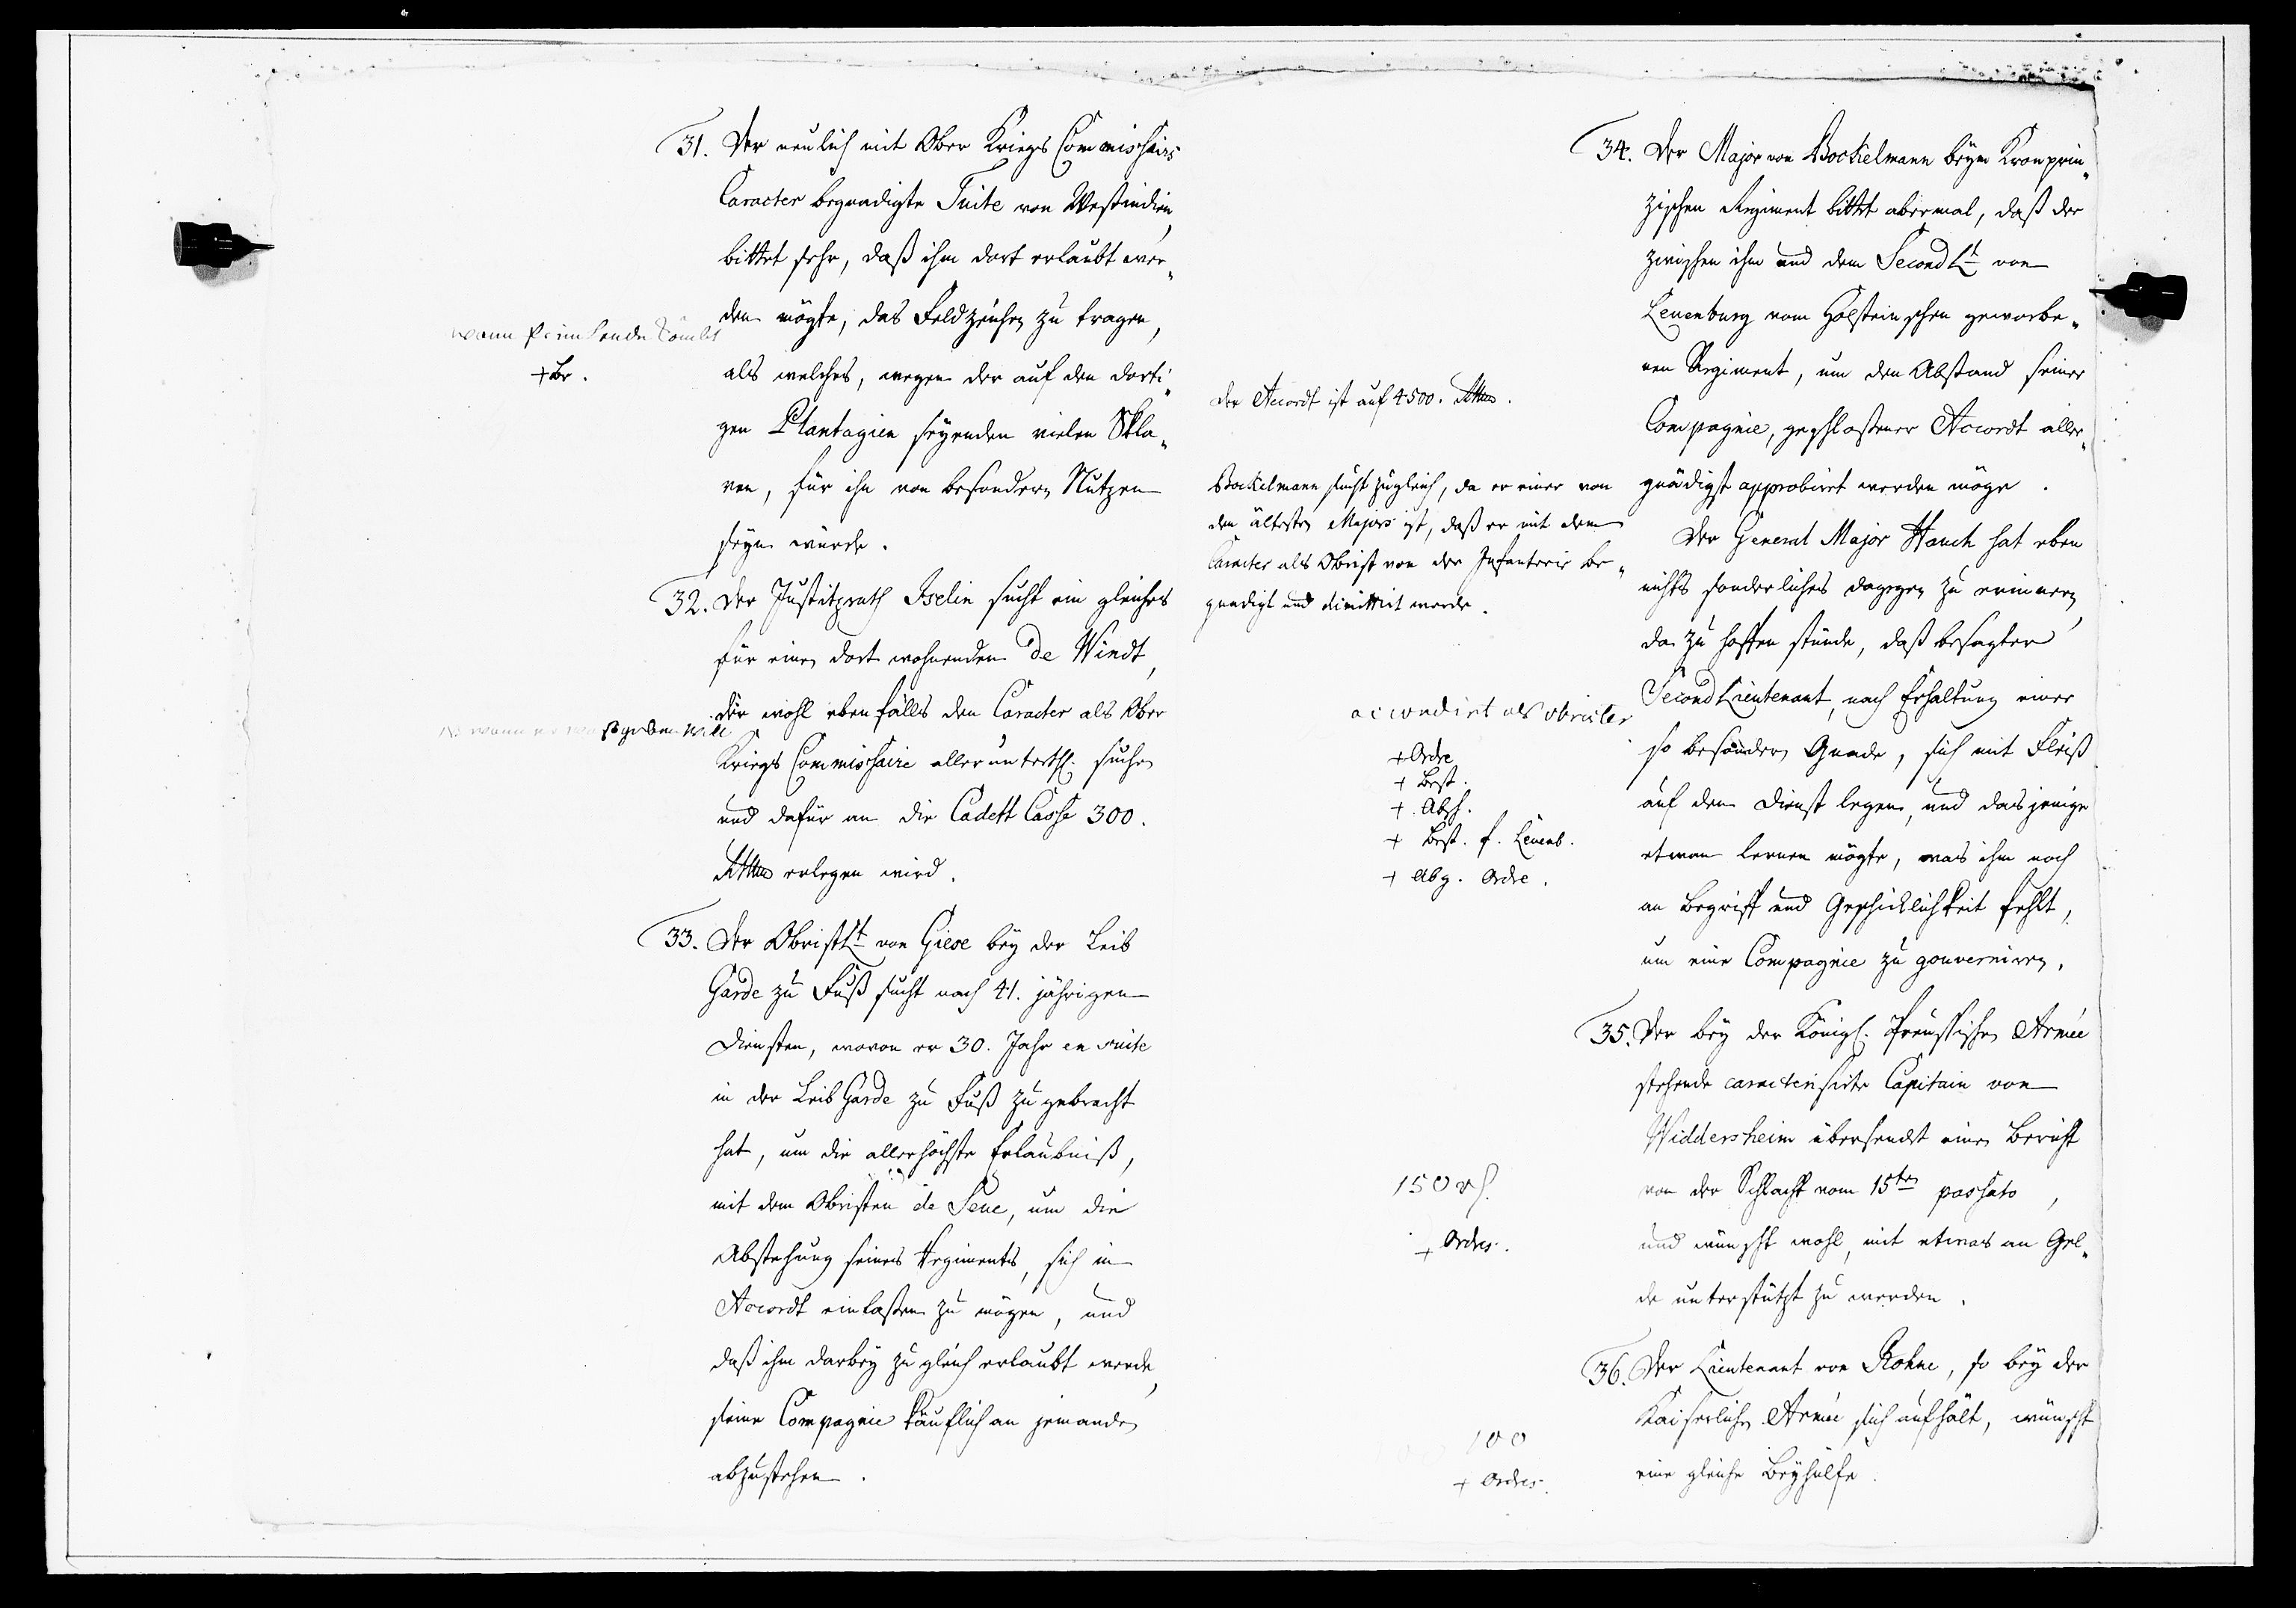 31. Der neulich mit Ober Kriegs Commissairs
Caracter begnadigte Tuite von Westindien,
bittet sehr, daß ihm dort erlaubt wer„
den mögte, das Feldzeichen zu tragen,
als welches, wegen der auf den dorti„
gen Plantagien seyenden vielen Skla„
ven, für ihn von besondern Nutzen
seyn würde.
wann
+ Br.
32. Der Justitzrath Iselin sucht ein gleiches
für einen dort wohnenden de Windt,
der wohl ebenfalls den Caracter als Ober
Kriegs Commissaire allerunterth. suchen
und dafür an die Cadett Casse 300.
Rthlr erlegen wird.
wann er was geben will
33. Der Obristlt von Giese bey der Leib
Garde zu Fuß sucht nach 41. jährigen
Diensten, wovon er 30. Jahr en suite
in der Leib Garde zu Fuß zugebracht
hat, um die allerhöchste Erlaubniß,
mit dem Obristen de Seue, um die
Abstehung seines Regiments, sich in
Accordt einlassen zu mögen, und
daß ihm darbey zugleich erlaubt werde,
seine Compagnie käuflich an jemanden
abzustehen.
34. Der Major von Bockelmann beym Kronprin„
zischen Regiment bittet abermal, daß der
zwischen ihm und dem Second Lt von
Leuenburg vom Holsteinschen geworbe„
nen Regiment, um den Abstand seiner
Compagnie, geschlossener Accordt aller„
gnädigst approbiret werden möge.
Der General Major Hauch hat eben
nichts sonderliches dagegen zu erinnern,
da zu hoffen stünde, daß besagter
Second Lieutenant, nach Erhaltung einer
so besondern Gnade, sich mit Fleiß
auf den Dienst legen, und dasjenige
etwan lernen mögte, was ihm noch
an Begriff und Geschicklichkeit fehlt,
um eine Compagnie zu gouverniren.
Der Accordt ist auf 4500. Rthlr.
Bockelmann sucht zugleich, da er einer von
den ältesten Majors ist, daß er mit dem
Caracter als Obrist von der Infanterie be„
gnadigt und dimittirt werde.
accordirt als obrister
+ Ordre
+ Best.
+ Absch.
+ Best. f. Leuenb.
+ Abg. Ordre.
35. Der bey der Königl. Preussischen Armée
stehende caracterisirte Capitain von
Widdersheim übersendet einen Bericht
von der Schlacht vom 15ten passato,
und wünscht wohl, mit etwas an Gel„
de unterstützt zu werden.
150 rh.
+ Ordres.
36. Der Lieutenant von Rohne, so bey der
Kaiserlichen Armée sich aufhält, wünscht
eine gleiche Beyhülfe.
100
+ Ordres.